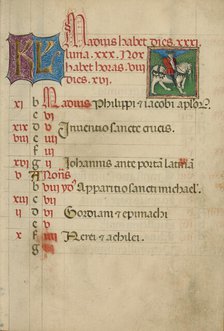 KL Madius habet dies xxxi
luna . xxx . Nox
habet horas . viii
dies . xvi .
xi b Madius Philippi et iacobi aplor̄
c vi
xix d v Inuentio sancte crucis .
viii e iiii
f iii
xvi g ii Iohannis ante portā latinā
v A Nonis
b viii ydꝰ Apparitio sancti michael'
c vii
d vi Gordiani et epimachi
e v
x f iiii Nerei et achilei .
g iii